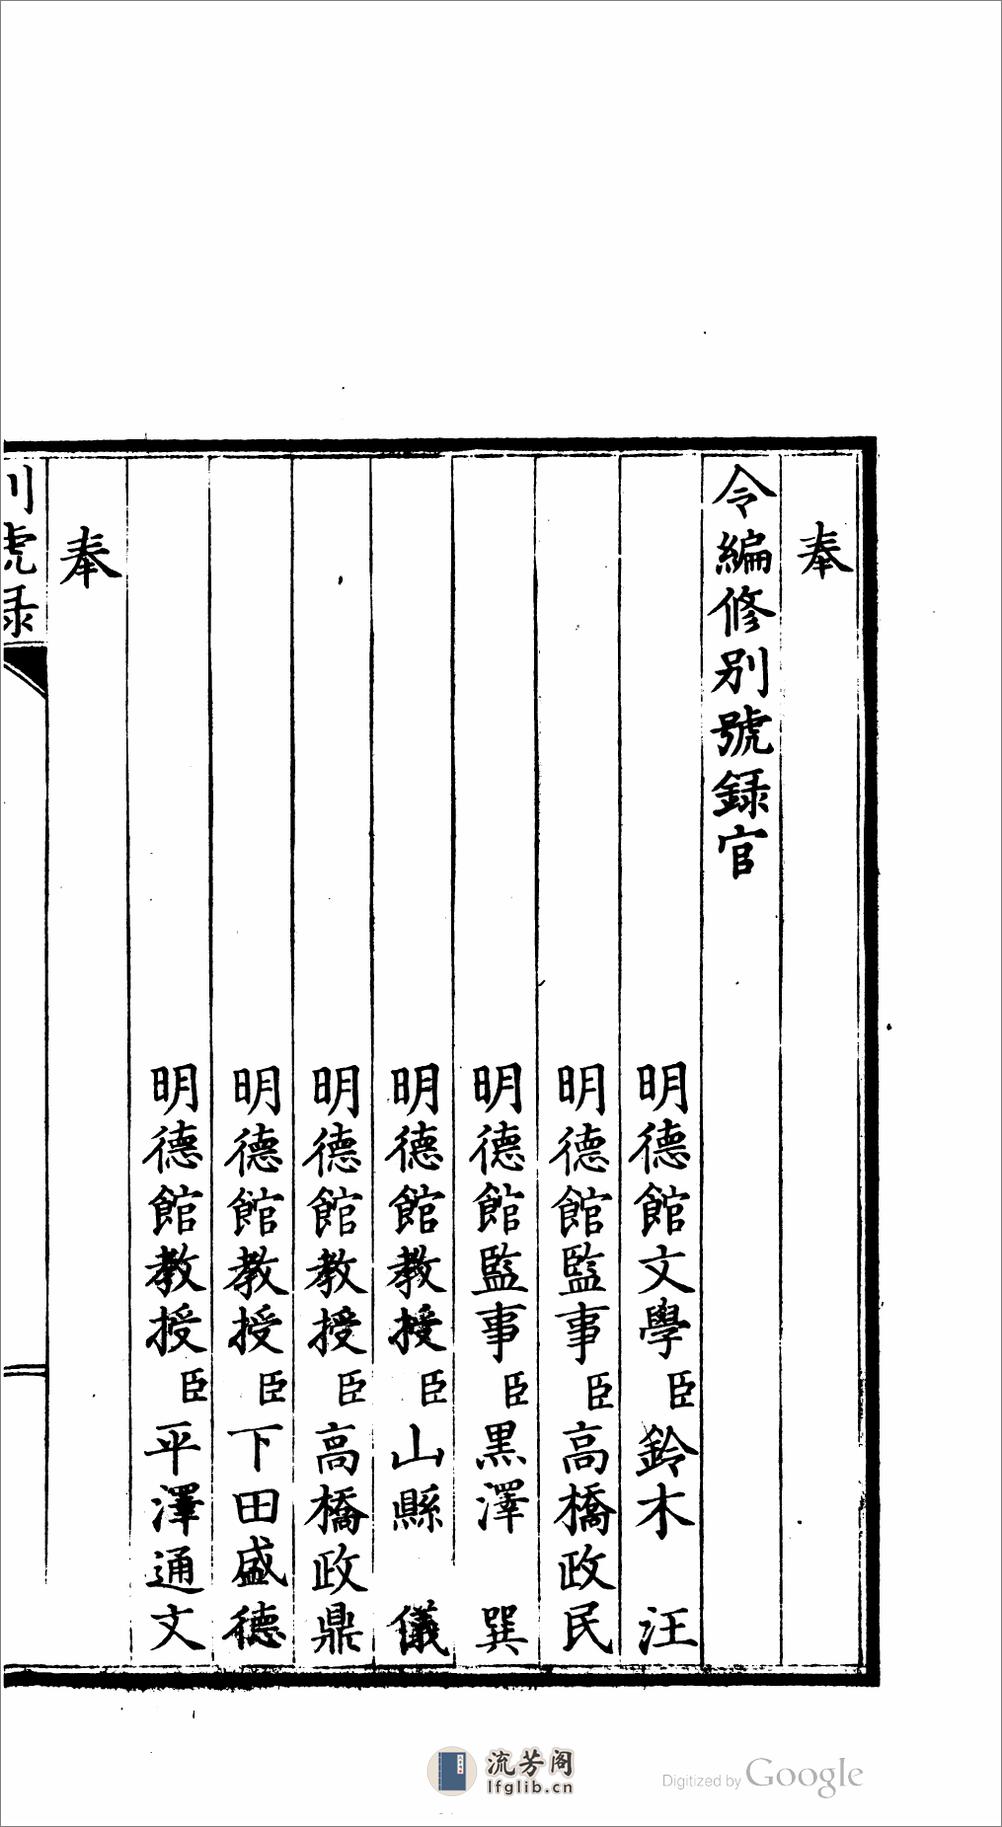 奉
令編修別號録官
明德館文學臣鈴木　汪
明德館監事臣高橋政民
明德館監事臣黒澤　巽
明德館教授臣山縣　儀
明德館教授臣高橋政鼎
明德館教授臣下田盛德
明德館教授臣平澤通文
奉
流芳阁
lfglib.cn
Digitized by Google